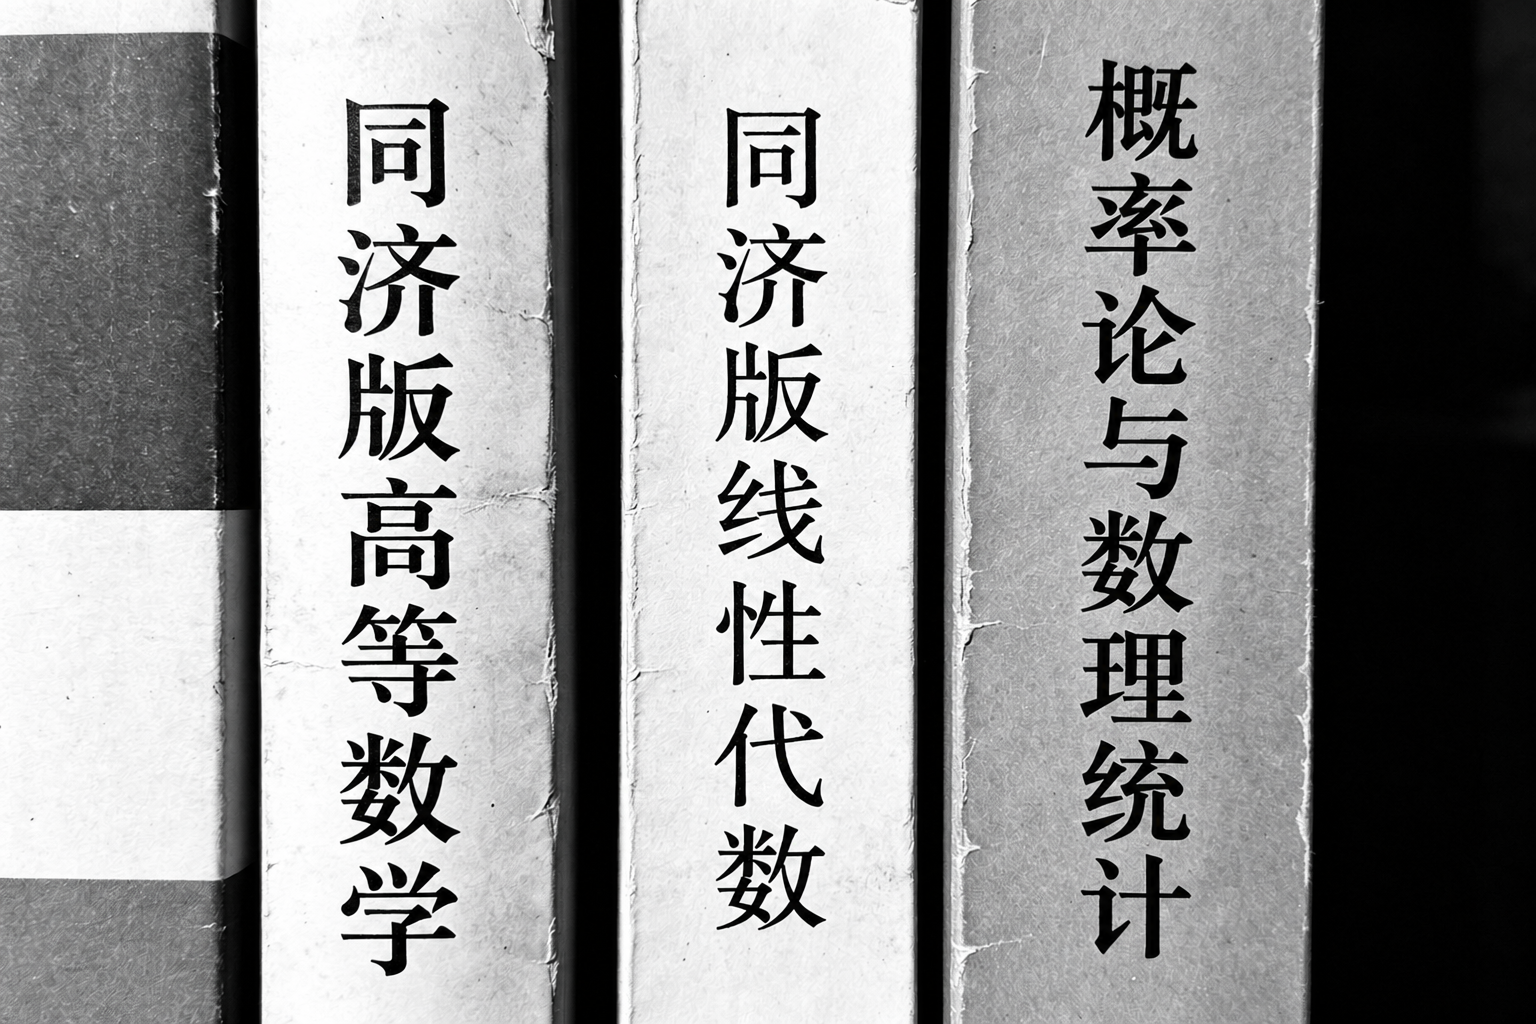 同济版高等数学
同济版线性代数
概率论与数理统计